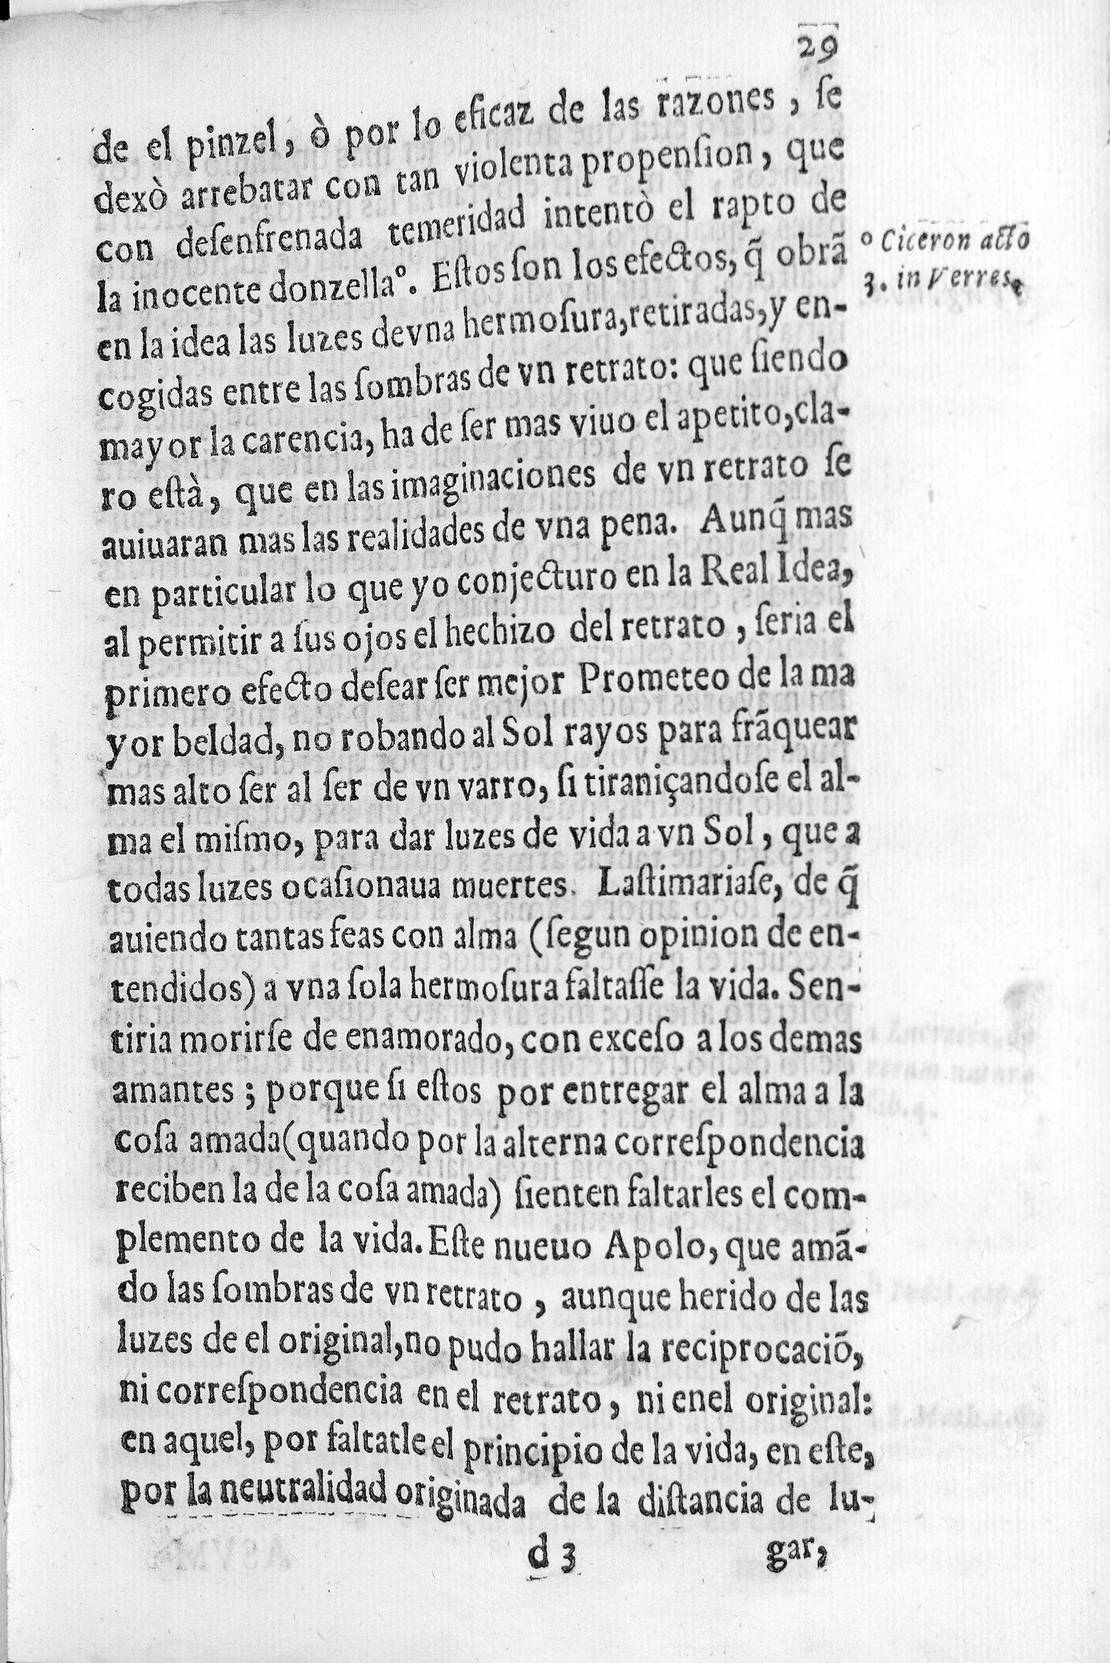 29
de el pinzel, ò por lo eficaz de las razones, ſe
dexò arrebatar con tan violenta propenſion, que
con deſenfrenada temeridad intentò el rapto de
la inocente donzellaº. Eſtos ſon los efectos, q̃ obrã
º Ciceron acto
3. in Verres.
en la idea las luzes de vna hermoſura, retiradas, y en-
cogidas entre las ſombras de vn retrato: que ſiendo
mayor la carencia, ha de ſer mas viuo el apetito, cla-
ro eſtà, que en las imaginaciones de vn retrato ſe
auiuaran mas las realidades de vna pena. Aunq̃ mas
en particular lo que yo conjecturo en la Real Idea,
al permitir a ſus ojos el hechizo del retrato, ſeria el
primero efecto deſear ſer mejor Prometeo de la ma
yor beldad, no robando al Sol rayos para frãquear
mas alto ſer al ſer de vn varro, ſi tiraniçandoſe el al-
ma el miſmo, para dar luzes de vida a vn Sol, que a
todas luzes ocaſionaua muertes. Laſtimariaſe, de q̃
auiendo tantas feas con alma (ſegun opinion de en-
tendidos) a vna ſola hermoſura faltaſſe la vida. Sen-
tiria morirſe de enamorado, con exceſo a los demas
amantes; porque ſi eſtos por entregar el alma a la
coſa amada (quando por la alterna correſpondencia
reciben la de la coſa amada) ſienten faltarles el com-
plemento de la vida. Eſte nueuo Apolo, que amã-
do las ſombras de vn retrato, aunque herido de las
luzes de el original, no pudo hallar la reciprocaciõ,
ni correſpondencia en el retrato, ni enel original:
en aquel, por faltatle el principio de la vida, en eſte,
por la neutralidad originada de la diſtancia de lu-
d 3 gar,